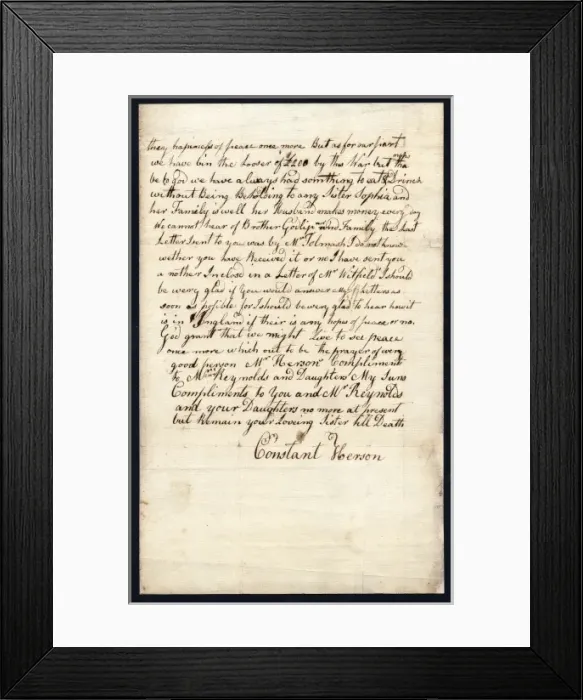 they hapiness of peace once more But as for our part
we have bin the Looser of £200 by this War but
be to god we have always had somthing to eat & Drink
without Being Beholding to any Sister Sophia and
her Family is well her Husband makes money every day
We cannot hear of Brother and Family the Last
Letter I sent to you was by Mr Tolmash I do not know
wether you have Received it or no I have sent you
a nother Inclose in a Letter of Mr Witfield I should
be wery glad if You would answer My Letters as
soon as posible for I should be wery glad to hear how it
is in England if their is any hopes of peace or no.
God grant that we might Live to see peace
once more which out to be the prayer of every
good person Mr Herson Compliment
to Mrs Reynolds and Daughters My Suns
Compliments to You and Mr Reynolds
and your Daughters no more at present
but Remain your Loveing Sister till Death
Constant Herson